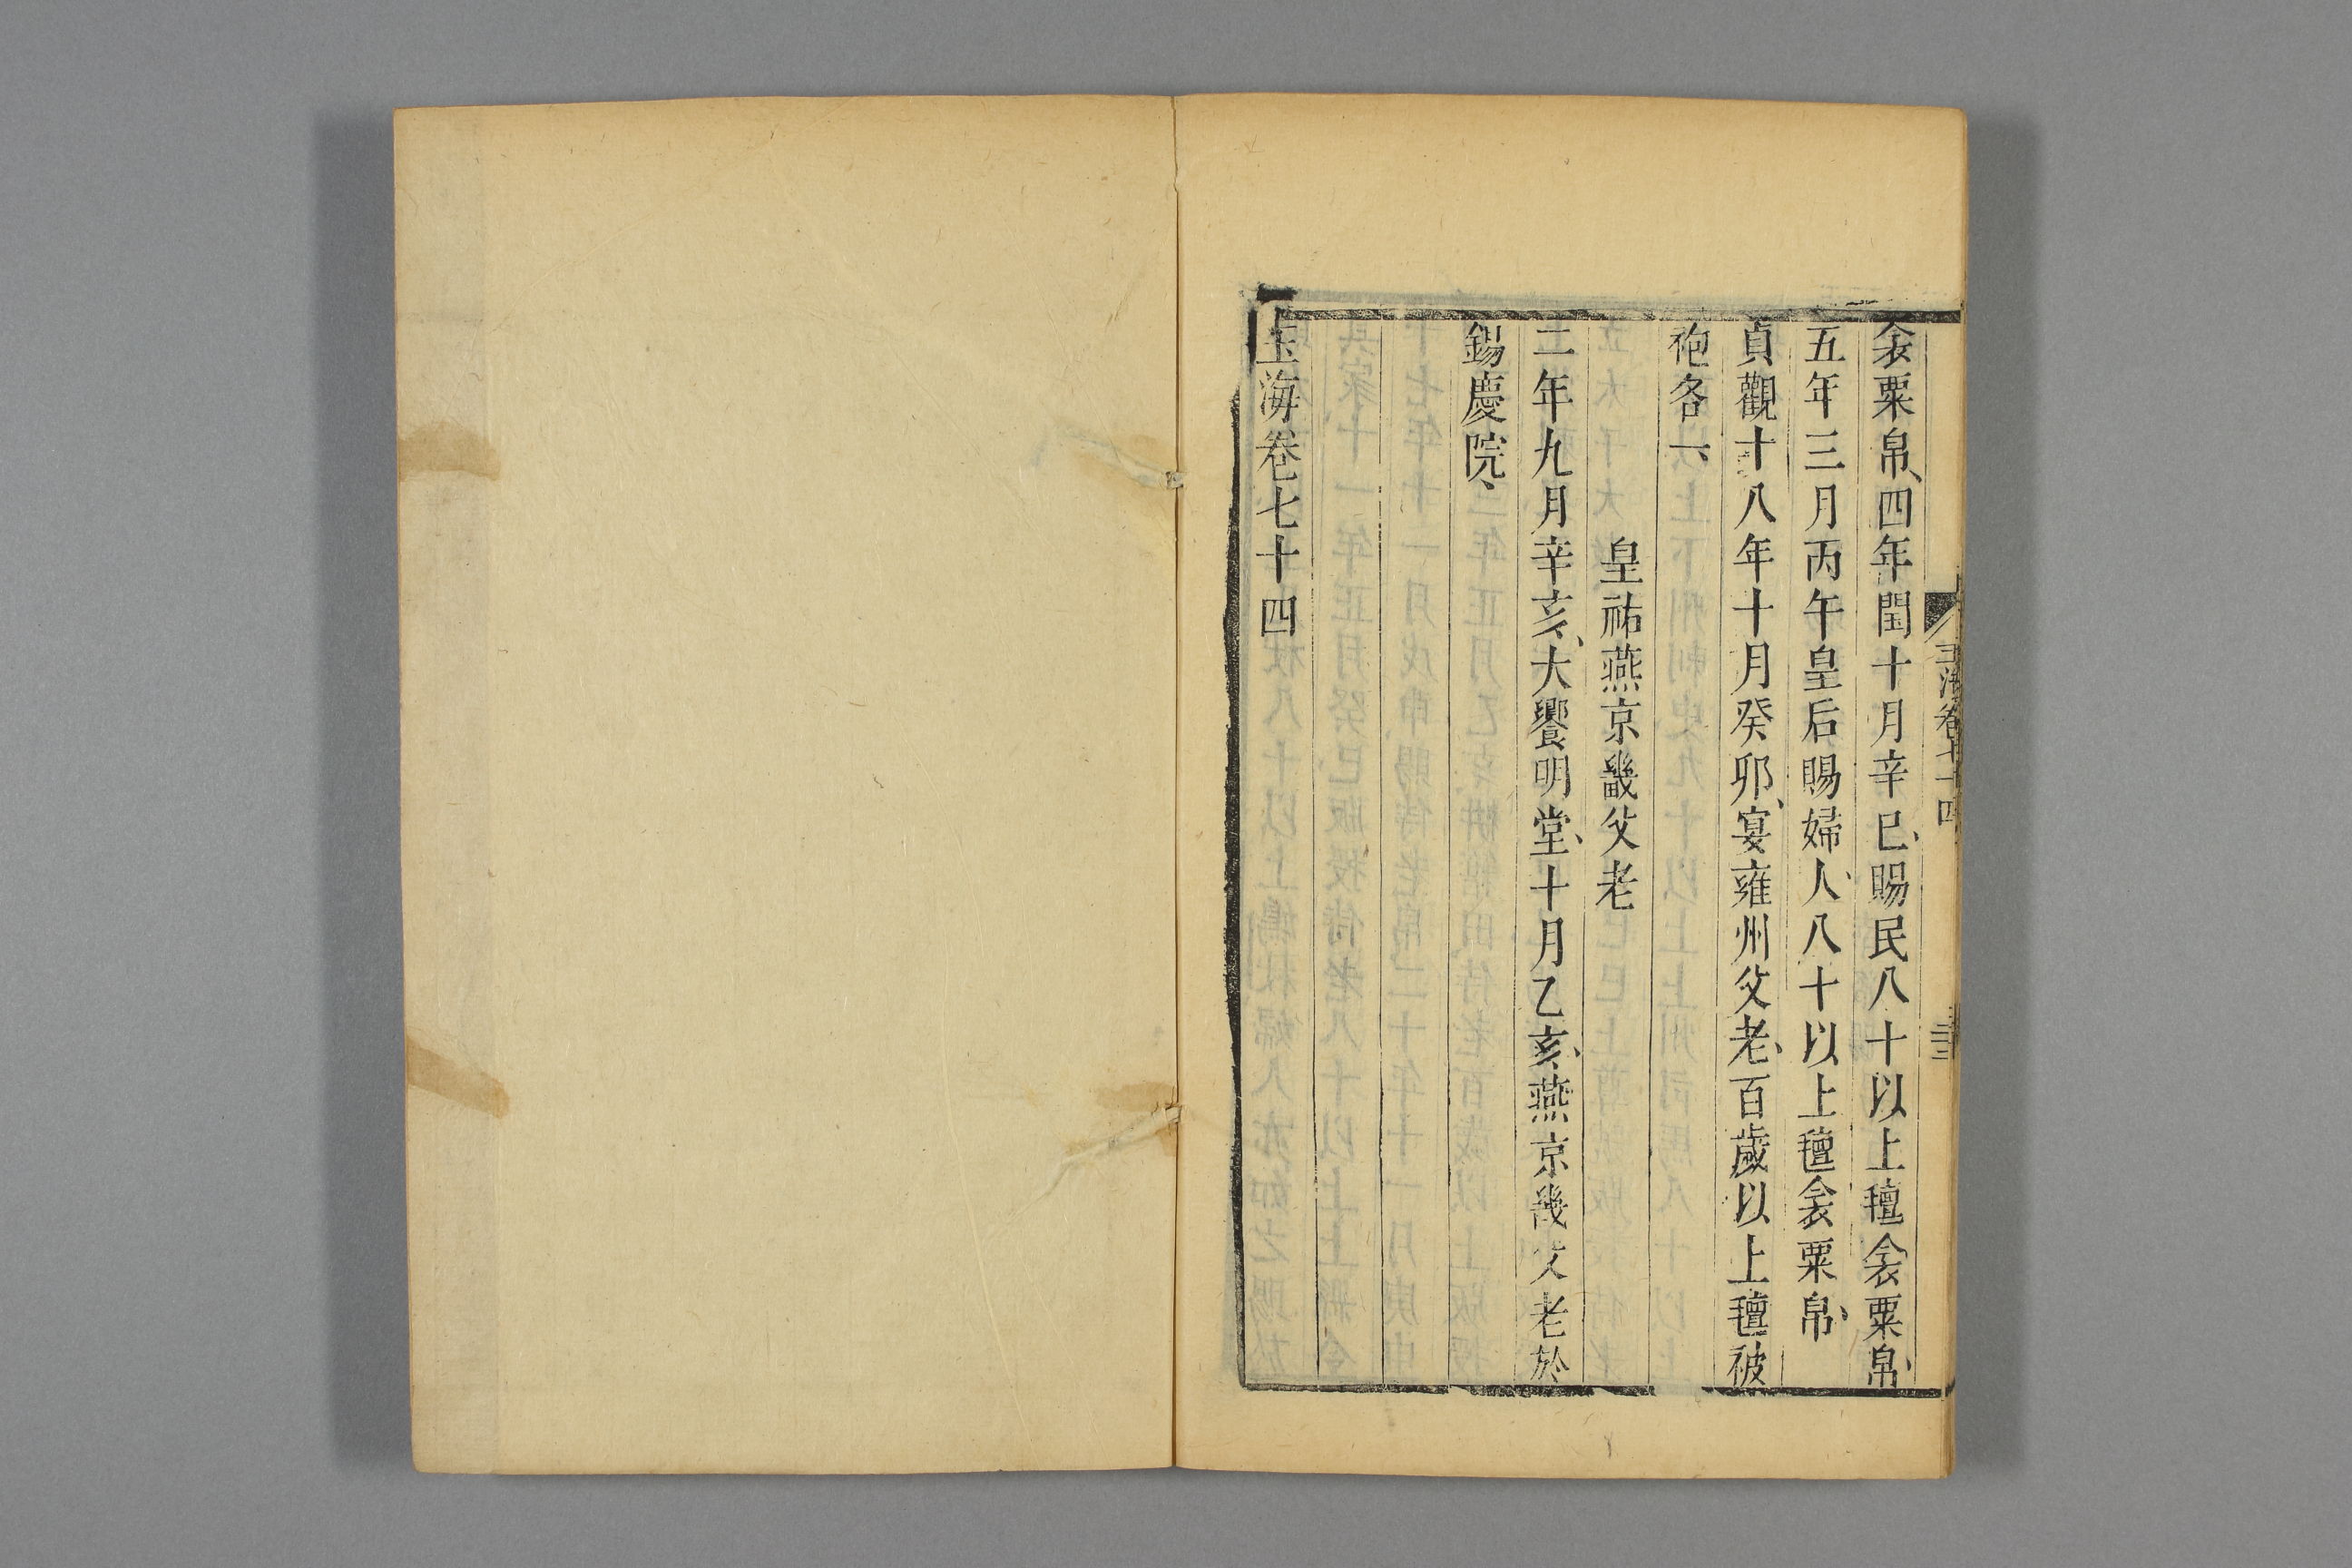 玉海卷七十四
衾粟帛、四年閏十月辛巳、賜民八十以上氊衾粟帛、
五年三月丙午皇后賜婦人、八十以上氊衾粟帛、
貞觀十八年十月癸卯、宴雍州父老、百歲以上氊被
袍各一、
皇祐燕京畿父老
二年九月辛亥、大饗明堂、十月乙亥、燕京畿父老於
錫慶院、
玉海卷七十四